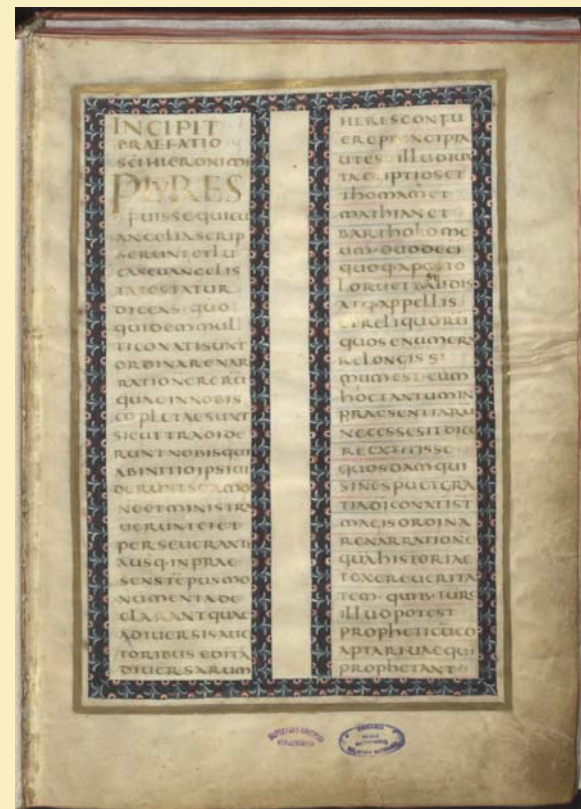 INCIPIT
PRAEFATIO
SCI HIERONIMI
PLURES
FUISSE QUI EU
ANGELIA SCRIP
SERUNT ET LU
CAS EUANGELIS
TA TESTATUR
DICENS QUO
QUIDEM MUL
TI CONATI SUNT
ORDINARE NAR
RATIONE RERU
QUAE IN NOBIS
COPLETAE SUNT
SICUT TRADIDE
RUNT NOBIS QUI
AB INITIO IPSI UI
DERUNT SERMO
NE ET MINISTRA
UERUNT EI ET
PERSEUERANTI
A USQ IN PRAE
SENS TEPUS MO
NUMENTA DE
CLARANT QUAE
A DIUERSIS AUC
TORIBUS EDITA
DIUERSARUM
HERESEON FU
ERE PRINCIPIA
UT EST ILLUD IUX
TA EGIPTIOS ET
THOMAM ET
MATHIAN ET
BARTHOLOME
UM DUODECI
QUOQ APOSTO
LORU ET BASILIDIS
ATQ APPELLIS
ET RELIQUORU
QUOS ENUMERA
RE LONGISSI
MUM EST CUM
HOC TANTUM IN
PRAESENTIARU
NECESSE SIT DICE
RE EXTITISSE
QUOSDAM QUI
SINE SPU ET GRA
TIA DI CONATI ST
MAGIS ORDINA
RE NARRATIONE
QUA HISTORIAE
TEXERE UERITA
TEM QUIB IURE
ILLUD POTEST
PROPHETICU CO
APTARI UAE QUI
PROPHETANT